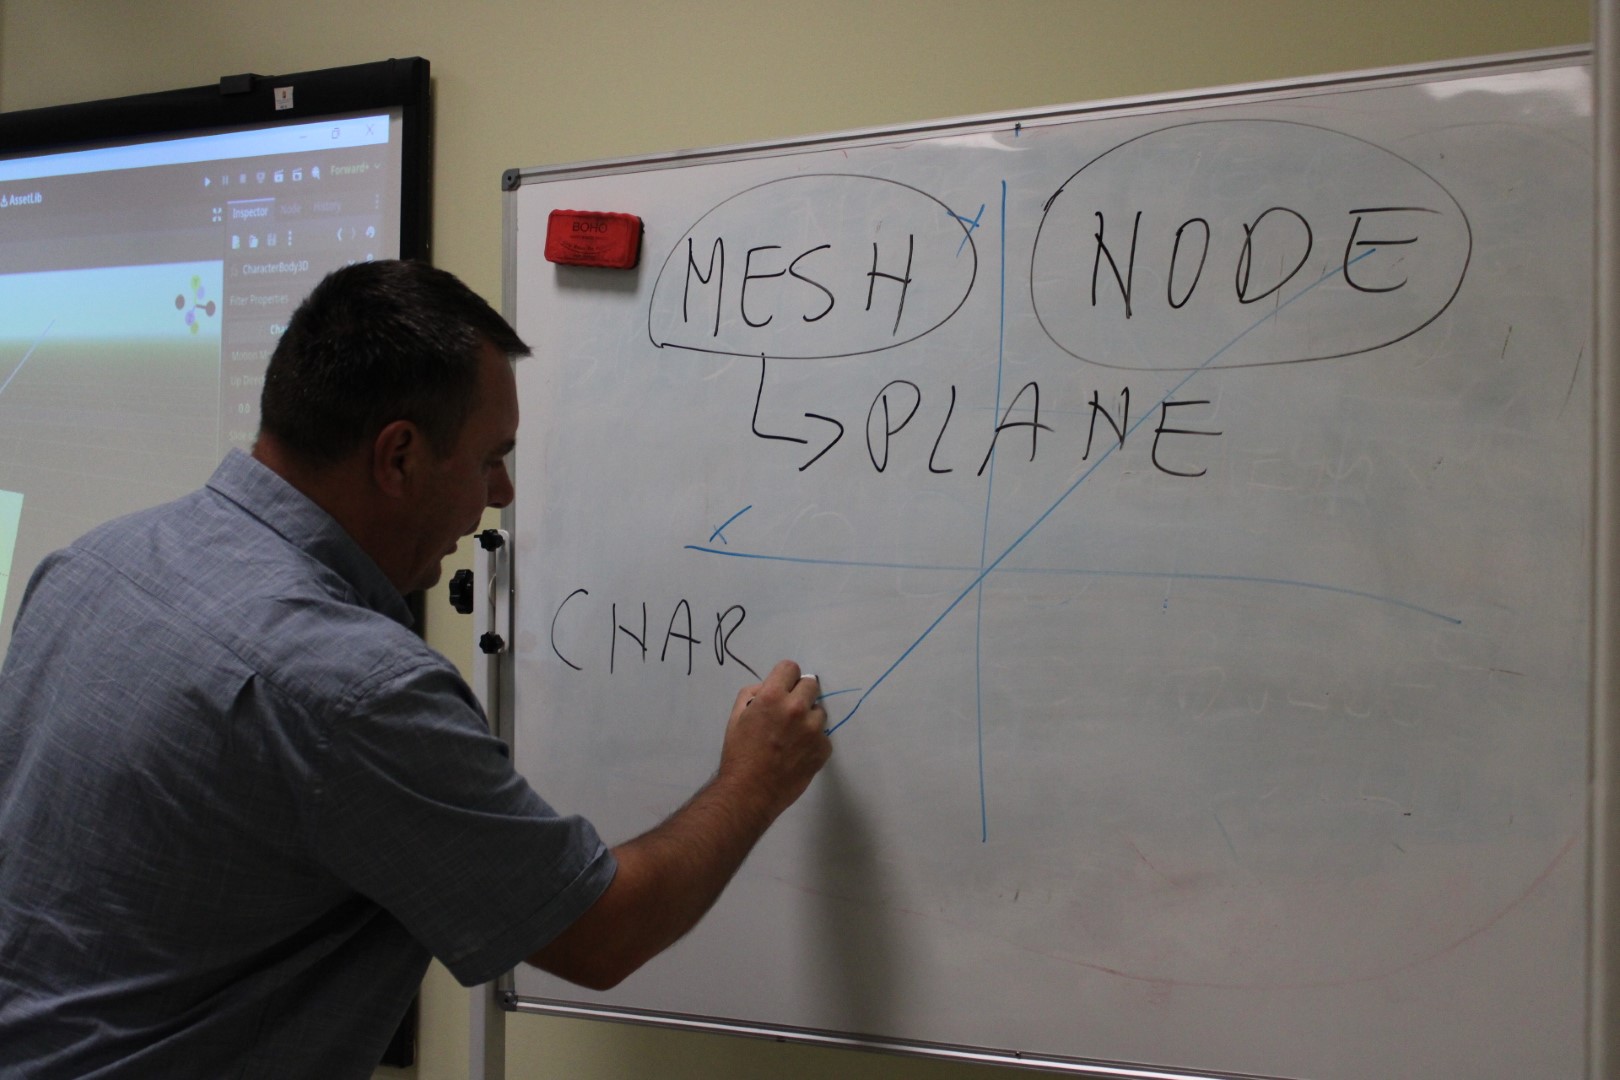 AssetLib
Forward+
Inspector
Node
History
CharacterBody3D
Filter Properties
0.0
BOHO
MESH
NODE
PLANE
CHAR